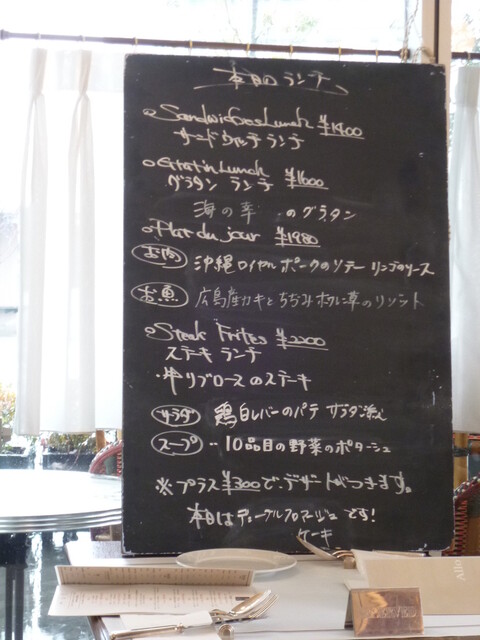 本日のランチ
Sandwiches Lunch ¥1400
サンドウィッチ ランチ
Gratin Lunch ¥1600
グラタン ランチ
海の幸 のグラタン
Plat du jour ¥1980
お肉 沖縄ロイヤルポークのソテー リンゴのソース
お魚 広島産カキとちぢみホウレン草のリゾット
Steak Frites ¥2200
ステーキ ランチ
・牛リブロースのステーキ
サラダ 鶏白レバーのパテ サラダ添え
スープ ‥10品目の野菜のポタージュ
※プラス¥300でデザートがつきます。
本日は です!
ケーキ